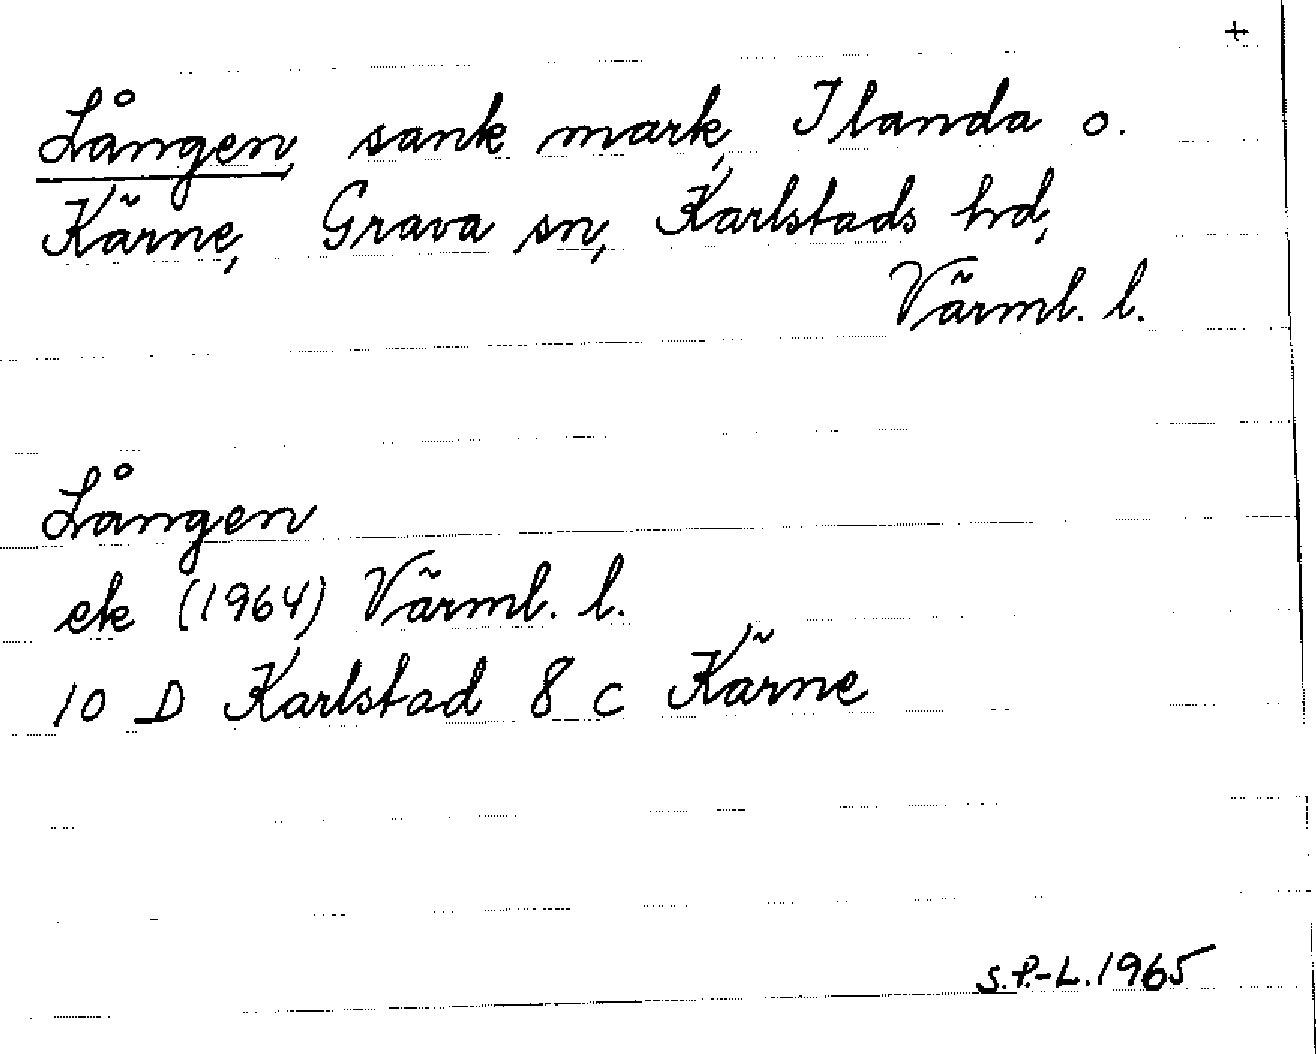 +
Lången, sank mark, Ilanda o.
Kärne, Grava sn, Karlstads hd,
Värml. l.
Lången
ek (1964) Värml. l.
10 D Karlstad 8 c Kärne
S.P.-L. 1965